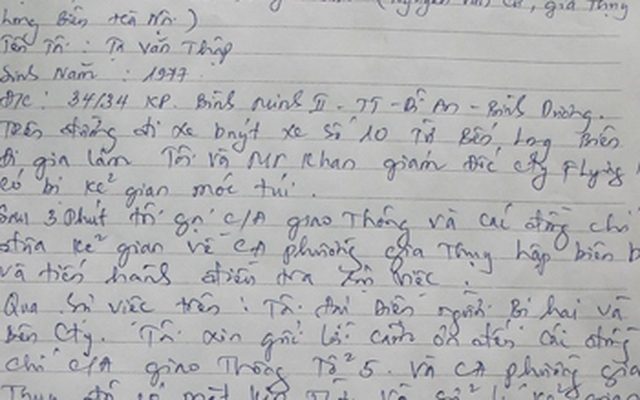 (Nguyễn Văn Cừ, gia Thụy
Long Biên Hà Nội)
Tên Tôi: Tạ Văn Thập
Sinh Năm: 1977
Đ/C: 34/34 KP. Bình Minh II - TT - Dĩ An - Bình Dương.
Trên đường đi xe buýt xe số 10 Từ Bến Long Biên
đi gia lâm Tôi và Mr Khan giám đốc Cty Flying
có bị kẻ gian móc túi.
Sau 3 Phút tôi gọi C/A giao Thông và các đồng chí
đưa kẻ gian về CA phường gia Thụy lập biên b
và tiến hành điều tra sự việc.
Qua sự việc trên: Tôi đại diện người Bị hại và
bên Cty. Tôi xin gửi lời cảm ơn đến các đồng
chí C/A giao Thông Tổ 5. Và CA phường gia
Thụy đã có mặt kịp Thời và xử lí kẻ gian